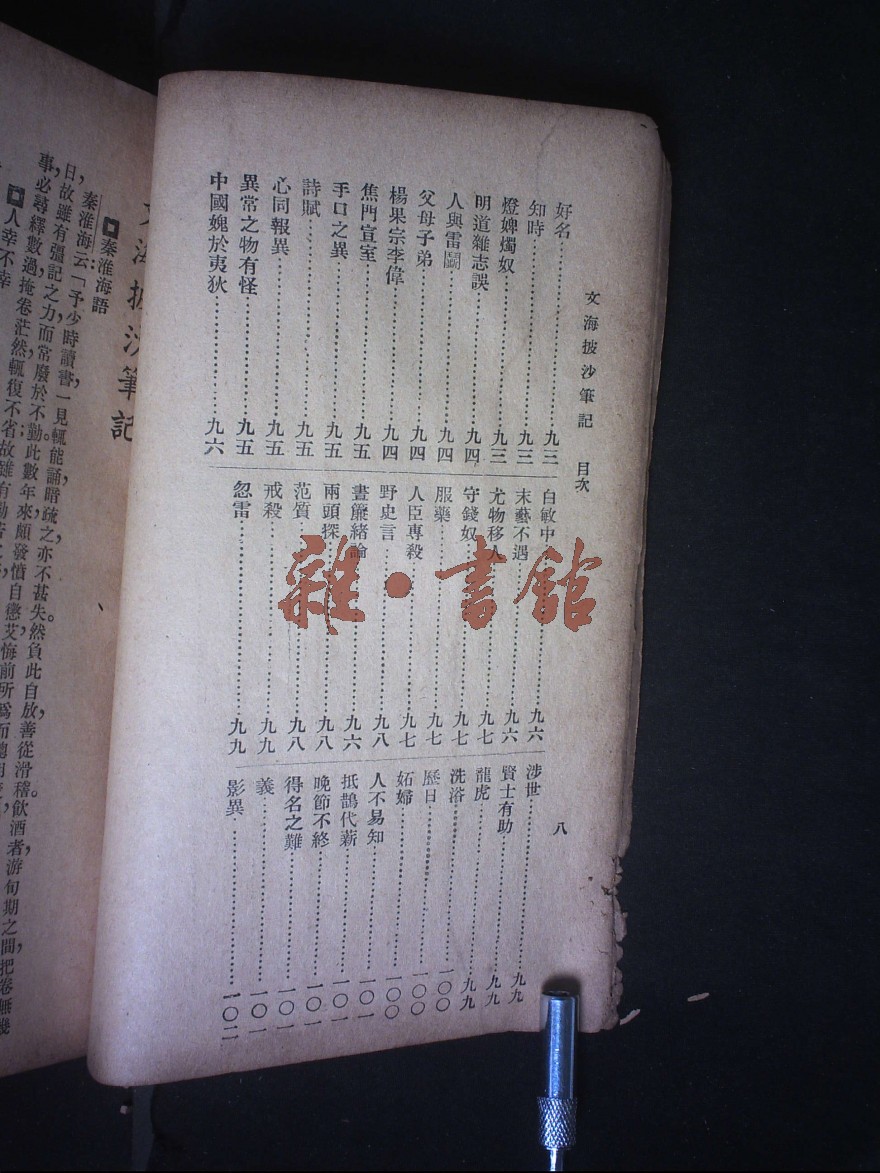 文海披沙筆記 目次 八
好名……九三
知時……九三
燈婢燭奴……九三
明道雜志誤……九四
人與雷鬭……九四
父母子弟……九四
楊果宗李偉……九四
焦門宣室……九五
手口之異……九五
詩賦……九五
心同報異……九五
異常之物有怪……九五
中國媿於夷狄……九六
白敏中……九六
末藝不遇……九六
尤物移人……九七
守錢奴……九七
服藥……九七
人臣專殺……九七
野史言……九八
晝簾緒論……九六
兩頭探……九八
范質……九八
戒殺……九九
忽雷……九九
涉世……九九
賢士有助……九九
龍虎……九九
洗浴……一〇〇
歷日……一〇〇
妬婦……一〇〇
人不易知……一〇一
抵鵲代薪……一〇一
晚節不終……一〇一
得名之難……一〇一
義……一〇一
影異……一〇二
雜·書館
海披沙筆記
秦淮海語
秦淮海云：「予少時讀書，一見輒能誦暗疏之，亦不甚失。然負此自放，善從滑稽飲酒者游，旬期之間，把卷無幾
日，故雖有彊記之力，而常廢於不勤。此數年來，頗發憤自懲艾，悔前所爲，而聰明
事，必尋繹數過，掩卷茫然，輒復不省，故雖有勤苦之
人幸不幸